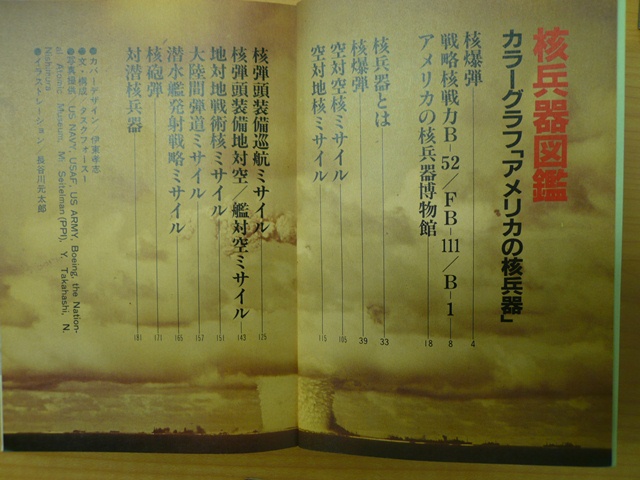 核兵器図鑑
カラーグラフ「アメリカの核兵器」
核爆弾 4
戦略核戦力B-52／FB-111／B-1 8
アメリカの核兵器博物館 18
核兵器とは 33
核爆弾 39
空対空核ミサイル 105
空対地核ミサイル 115
核弾頭装備巡航ミサイル 125
核弾頭装備地対空／艦対空ミサイル 143
地対地戦術核ミサイル 151
大陸間弾道ミサイル 157
潜水艦発射戦略ミサイル 165
核砲弾 171
対潜核兵器 181
●カバーデザイン 伊東孝志
●文・構成 タスクフォース一
●写真提供 US NAVY, USAF, US ARMY, Boeing, the Nation-
al Atomic Museum, M. Seitelman (PPI), Y. Takahashi, N.
Nishimura
●イラストレーション 長谷川元太郎